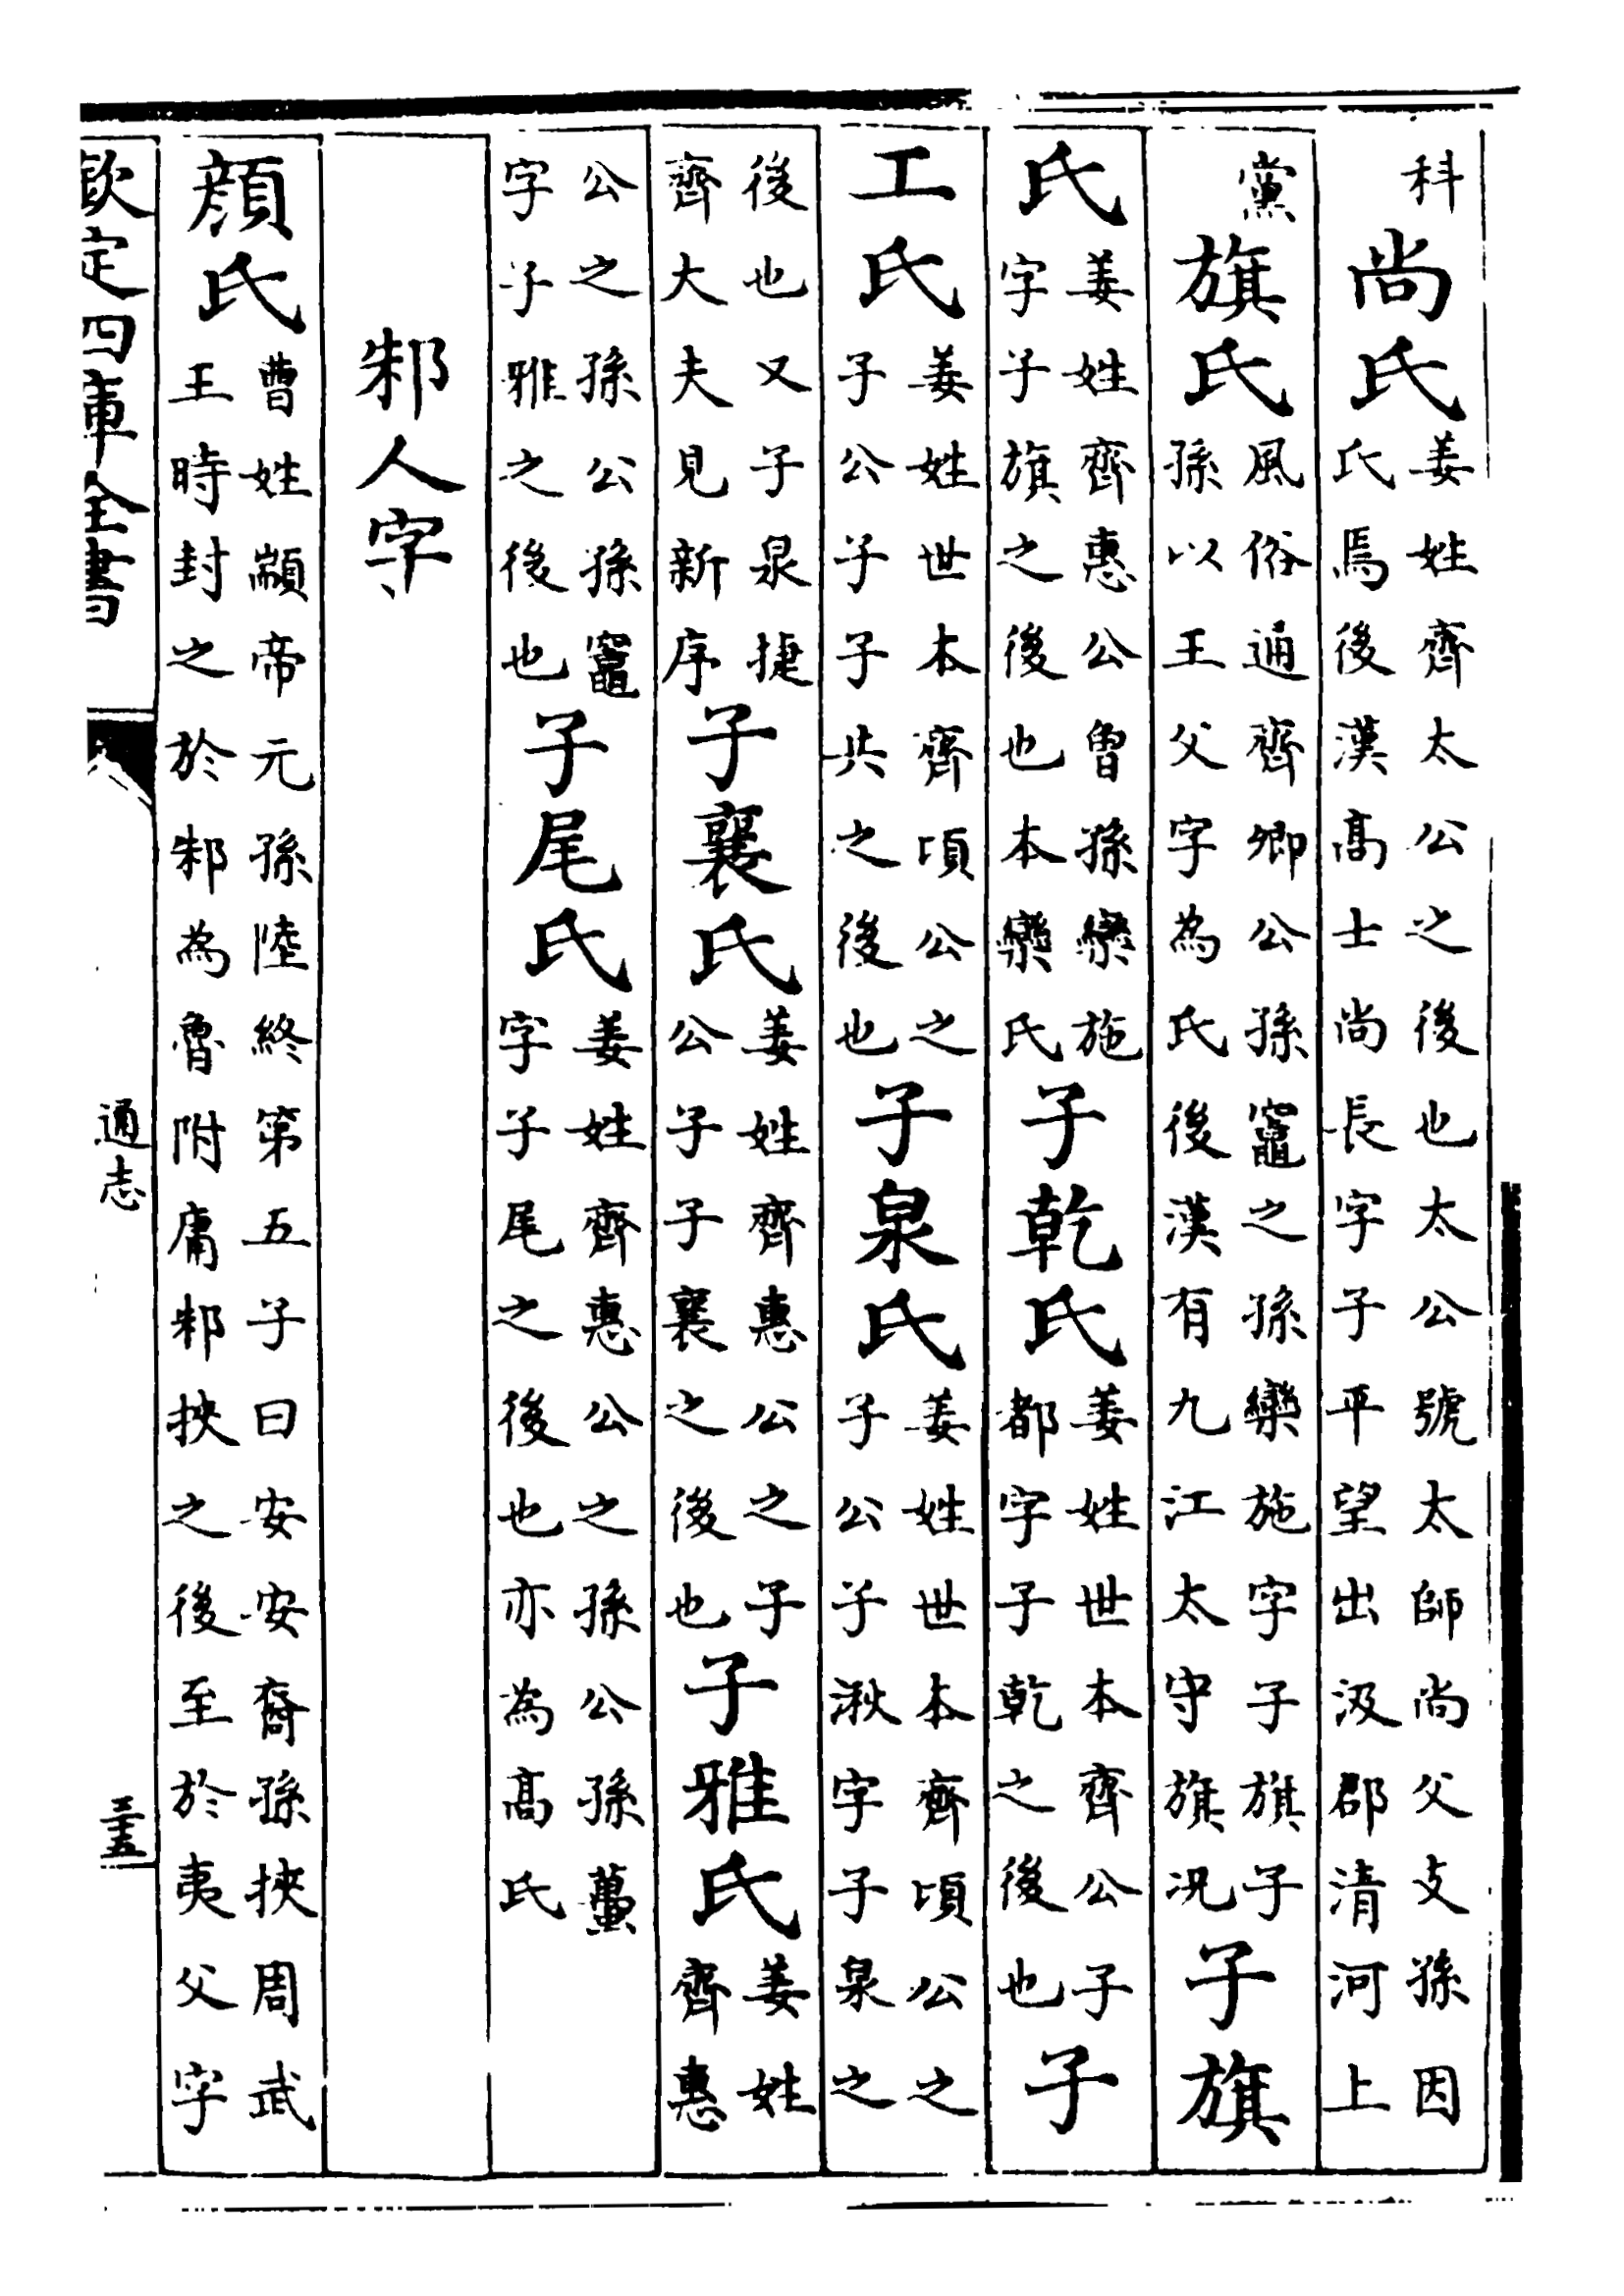 科尚氏姜姓齊太公之後也太公號太師尚父支孫因氏焉後漢高士尚長字子平望出汲郡清河上
黨旗氏風俗通齊卿公孫竈之孫欒施字子旗子孫以王父字為氏後漢有九江太守旗况子旗
氏姜姓齊惠公曾孫欒施字子旗之後也本欒氏子乾氏姜姓世本齊公子都字子乾之後也子
工氏姜姓世本齊頃公之子公子子共之後也子泉氏姜姓世本齊頃公之子公子湫字子泉之
後也又子泉捷齊大夫見新序子襄氏姜姓齊惠公之子公子子襄之後也子雅氏姜姓齊惠
公之孫公孫竈字子雅之後也子尾氏姜姓齊惠公之孫公孫蠆字子尾之後也亦為高氏
邾人字
顔氏曹姓顓帝元孫陸終第五子曰安安裔孫挾周武王時封之於邾為魯附庸邾挾之後至於夷父字
欽定四庫全書
通志